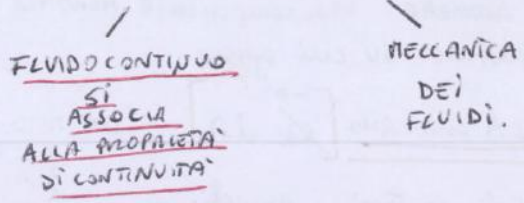 FLUIDO CONTINUO
SI
ASSOCIA
ALLA PROPRIETÀ
DI CONTINUITÀ
MECCANICA
DEI
FLUIDI.